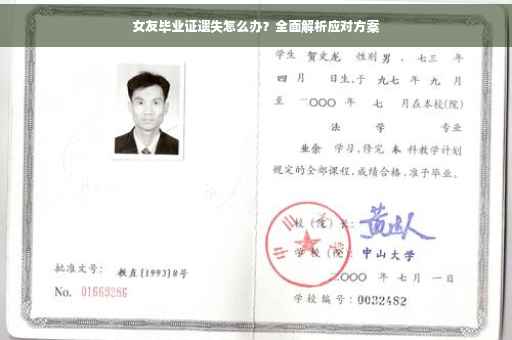 女友毕业证遗失怎么办？全面解析应对方案
学生 贺文龙 性别 男 、七三 年
四 月 日生,于 九七 年 九 月
至 二○○○ 年 七 月在本校(院)
法 学 专业
业余 学习,修完 本 科教学计划
规定的全部课程,成绩合格,准予毕业。
校(院)长:
学校(院): 中山大学
二○○○ 年 七 月 一 日
批准文号: 教直[1993]8号
No. 01669286
学校编号: 0032482